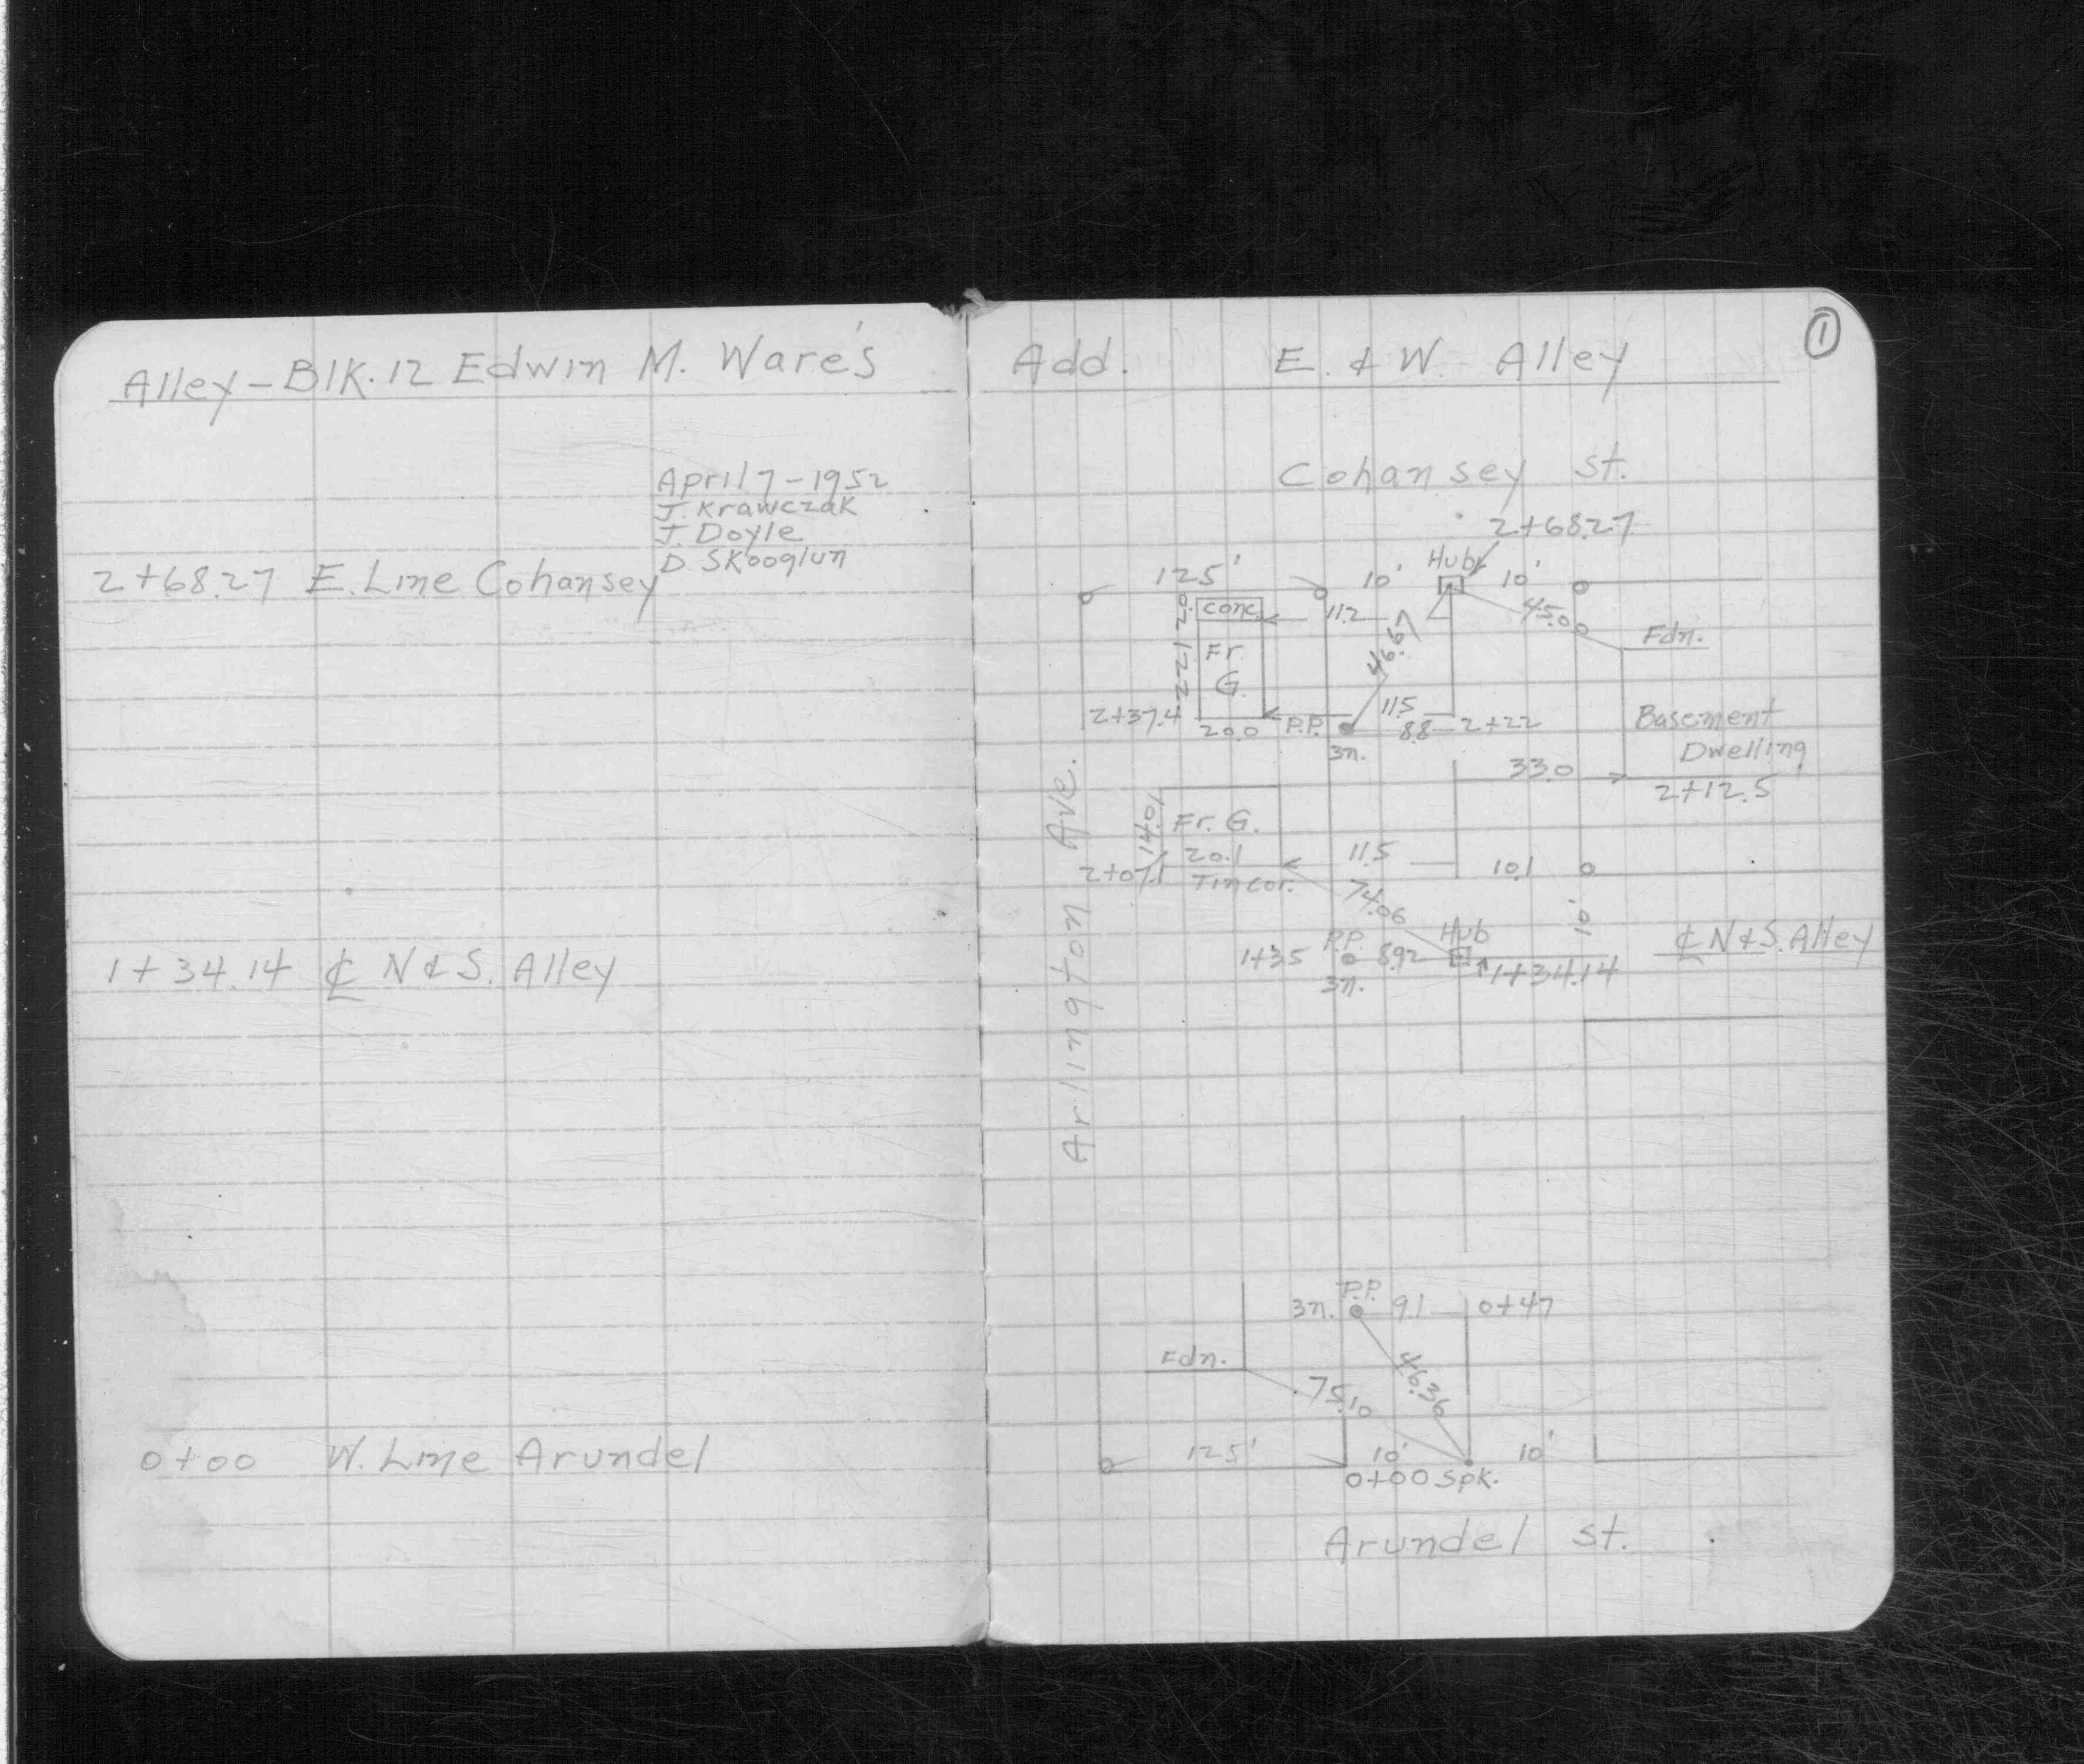 Alley - Blk. 12 Edwin M. Ware's Add. E. & W. Alley
1
April 7 - 1952
J. Krawczak
J. Doyle
D. Skooglun
2+68.27 E. Line Cohansey
1+34.14 ℄ N & S. Alley
0+00 W. Line Arundel
Cohansey St.
2+68.27
Hub
125' 10' 10'
2.0 conc. 11.2 45.0
46.67
Fdn.
22.1 Fr.
G.
11.5
2+37.4 20.0 P.P. 8.8 2+22
3n.
Basement
Dwelling
33.0
2+12.5
Arlington Ave.
14.0 Fr. G.
20.1 11.5 10.1
2+07.1 Tin cor.
74.06
10'
P.P. Hub ℄ N & S. Alley
1+35 8.92 1+34.14
3n.
P.P.
3n. 9.1 0+47
Fdn.
46.36
75.10
125' 10' 10'
0+00 Spk.
Arundel St.